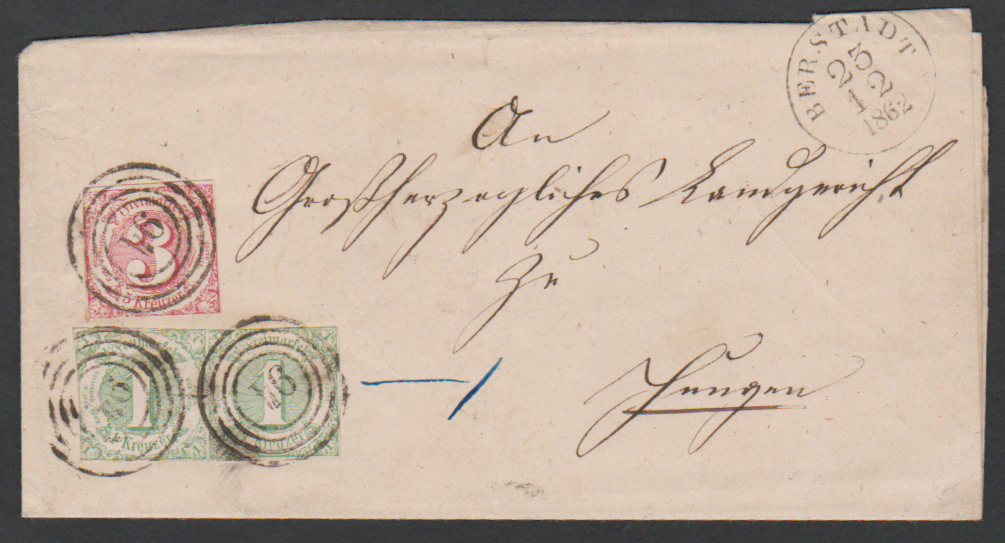 BERSTADT
25
12
1862
An
Großherzogliches Landgericht
zu
Hungen
Freimarke
3
3 Kreuzer
Freimarke
1
1 Kreuzer
Freimarke
1
1 Kreuzer